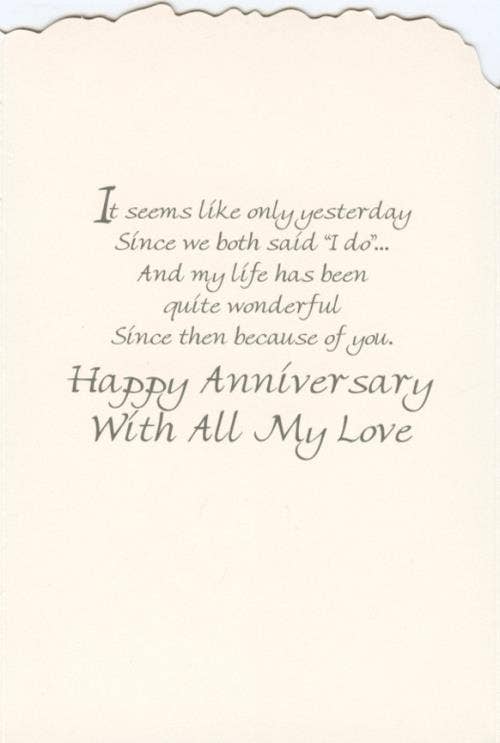 It seems like only yesterday
Since we both said “I do”...
And my life has been
quite wonderful
Since then because of you.
Happy Anniversary
With All My Love